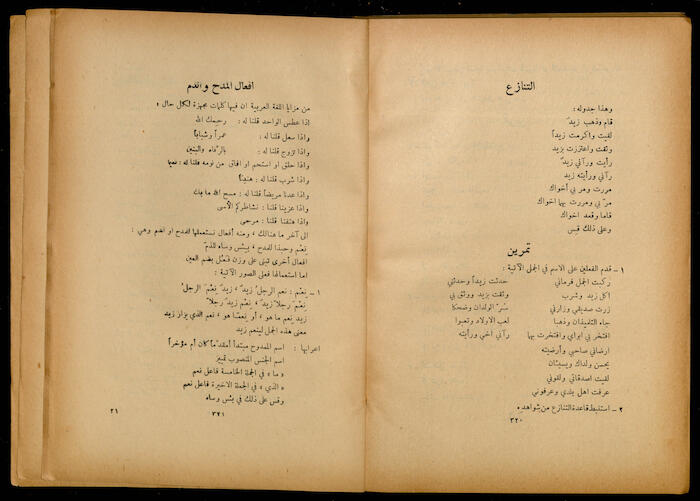 التنازع
وهذا جدوله:
قام وذهب زيدٌ
لقيت واكرمت زيداً
وثقت واعتززت بزيد
رأيت ورآني زيدٌ
رآني ورأيته زيد
مررت ومر بي أخواك
مرّ بي ومررت بهما اخواك
قاما وقعد اخواك
وعلى ذلك قِس
تمرين
١ – قدم الفعلين على الاسم في الجمل الآتية:
ركبت الجمل فرماني حدثت زيداً وحدثني
اكل زيد وشرب وثقت بزيد ووثق بي
زرت صديقي وزارني سُرّ الولدان وضحكا
جاء التلميذان وذهبا لعب الاولاد وتعبوا
افتخر بي ابواي وافتخرت بهما رآني اخي ورأيته
ارضاني صاحبي وأرضيته
يحسن ولداك ويسيئان
لقيت اصدقائي ولقوني
عرفت اهل بلدي وعرفوني
٢ – استنبط قاعدة التنازع من شواهده
٣٢٠
افعال المدح والذم
من مزايا اللغة العربية ان فيها كلمات مجهزة لكل حال؛
اذا عطس الواحد قلنا له: رحمك الله
واذا سعل قلنا له: عمراً وشباباً
واذا تزوج قلنا له: بالرّفاء والبنين
واذا حلق او استحم او افاق من نومه قلنا له: نعيماً
واذا شرب قلنا له: هنيئاً
واذا عدنا مريضاً قلنا له: مسح الله ما بك
واذا عزينا قلنا: نشاطركم الأسى
واذا هتفنا قلنا: مرحى
الى آخر ما هنالك، ومنه أفعال نستعملها للمدح او الذم وهي:
نِعم وحبذا للمدح، بِئس وساء للذمّ
افعال أخرى تبنى على وزن فَعُلَ بضم العين
اما استعمالها فعلى الصور الآتية:
١ – نِعْمَ: نعم الرجلُ زيدٌ، زيدٌ نِعْمَ الرجلُ
نِعْمَ رجلاً زيدٌ، نِعْمَ زيدٌ رجلاً
زيد نِعم ما هو، أو نِعِمّا هو، نعم الذي يزار زيد
معنى هذه الجمل لينعم زيد
اعرابها: اسم الممدوح مبتدأ مقدّماً كان أم مؤخراً
اسم الجنس المنصوب تمييز
«ما» في الجملة الخامسة فاعل نعم
«الذي» في الجملة الاخيرة فاعل نعم
وقس على ذلك في بئس وساء
٣٢١ ٢١